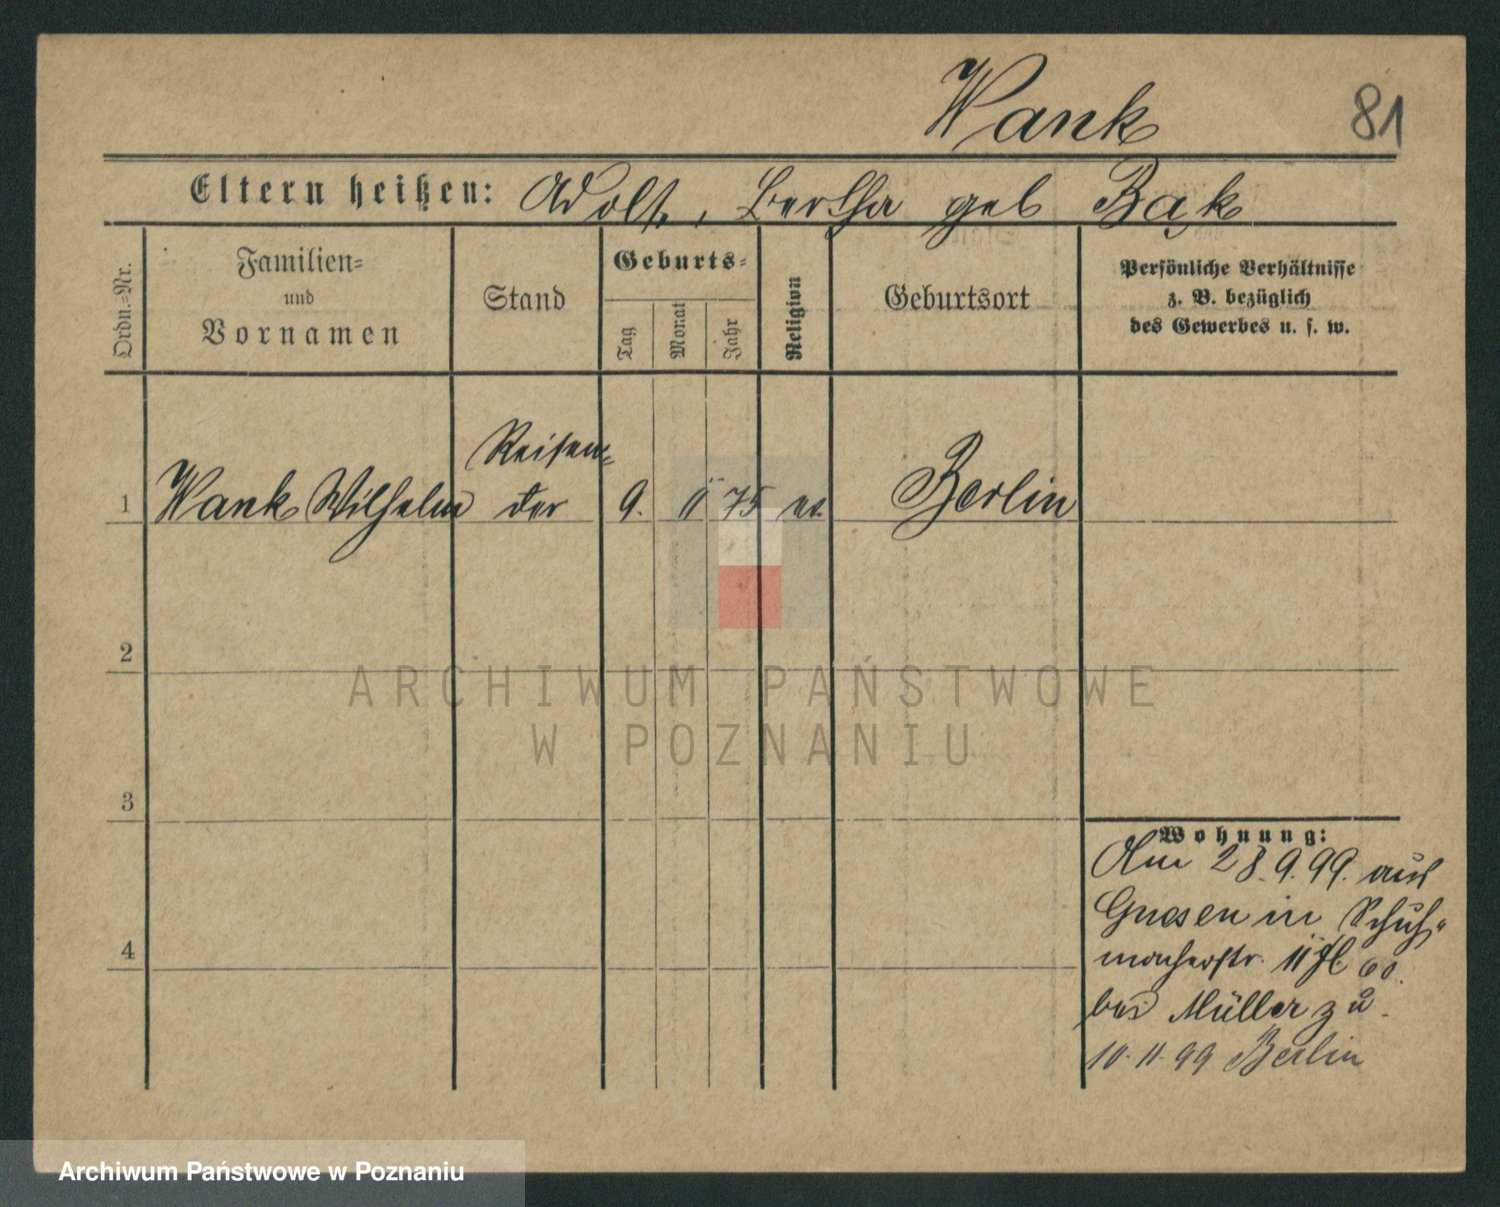 Wank 81
Eltern heißen: Adolf, Bertha geb Bąk
Ordn.=Nr.
Familien=
und
Vornamen
Stand
Geburts=
Tag
Monat
Jahr
Religion
Geburtsort
Persönliche Verhältnisse
z. B. bezüglich
des Gewerbes u. s. w.
Reisen=
1 Wank Wilhelm der 9. 11 75 ev. Berlin
2
ARCHIWUM PAŃSTWOWE
W POZNANIU
3
Wohnung:
Am 28.9.99. aus
Gnesen in Schuh=
macherstr. 11
bei Müller zu.
10.11.99 Berlin
4
Archiwum Państwowe w Poznaniu